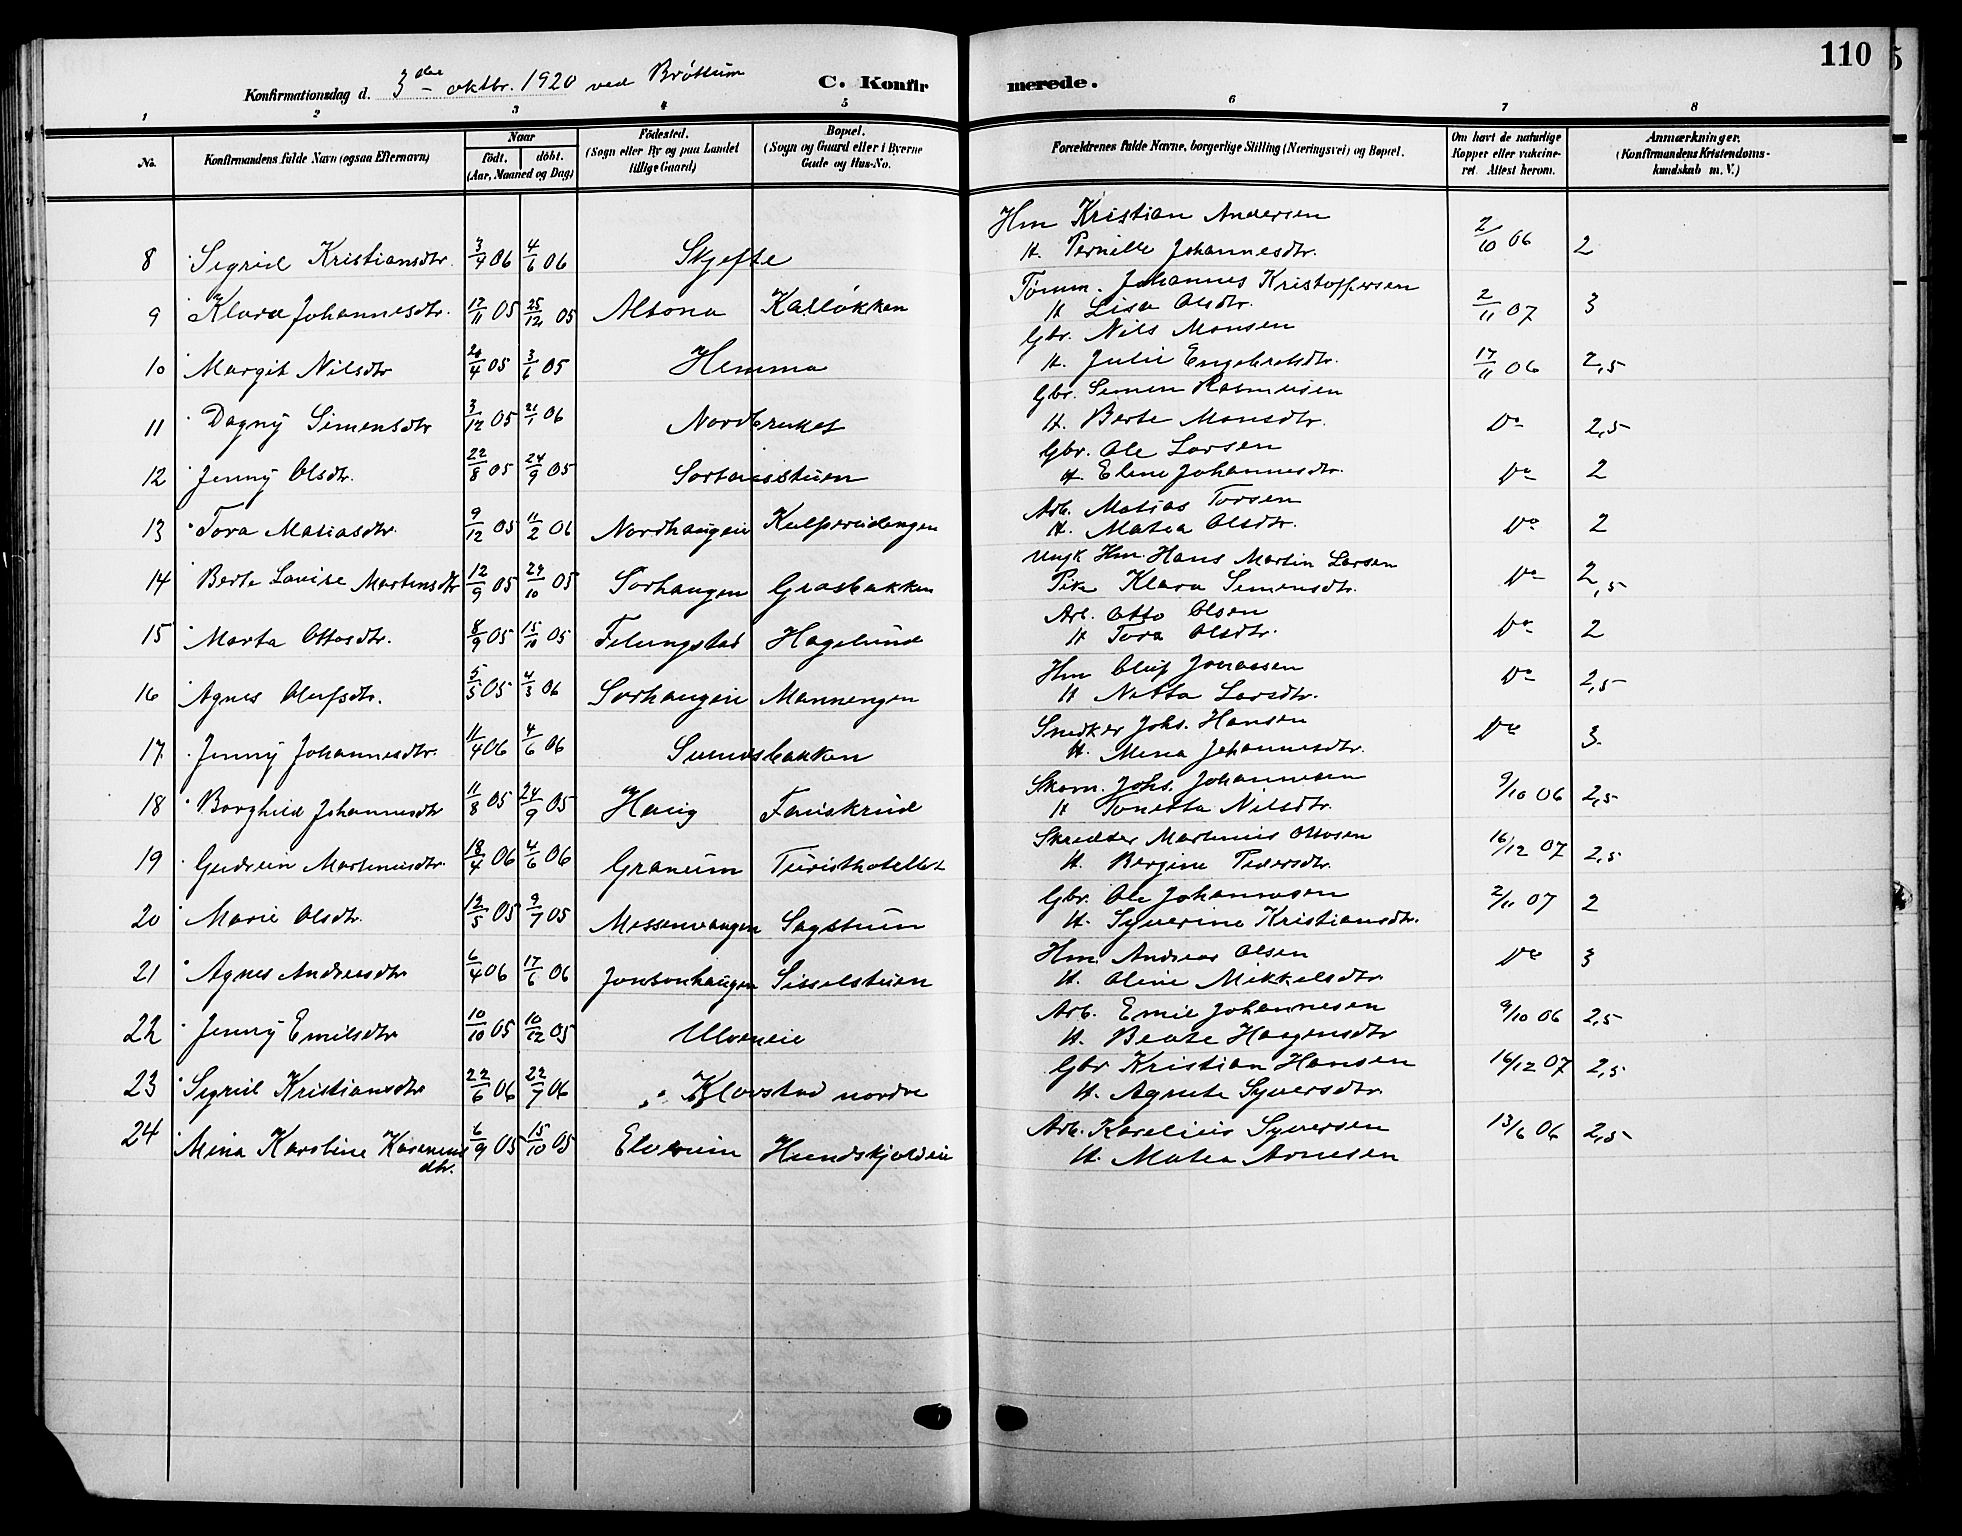 110
Konfirmationsdag d. 3die oktbr. 1920 ved Brøttum C. Konfirmerede.
1 2 3 4 5 6 7 8
No. Konfirmandens fulde Navn (ogsaa Efternavn) Naar født. døbt. (Aar, Maaned og Dag) Fødested. (Sogn eller By og paa Landet tillige Gaard) Bopæl. (Sogn og Gaard eller i Byerne Gade og Hus-No. Forældrenes fulde Navne, borgerlige Stilling (Næringsvei) og Bopæl. Om havt de naturlige Kopper eller vakcineret. Attest herom. Anmærkninger. (Konfirmandens Kristendomskundskab m. V.)
8 Sigrid Kristiansdtr. 3/4 06 4/6 06 Skjefte Hm Kristian Andersen
H. Pernille Johannesdtr. 2/10 06 2
9 Klara Johannesdtr. 12/11 05 25/12 05 Altona Kalløkken Tømm. Johannes Kristoffersen
H Lisa Olsdtr. 2/11 07 3
10 Margit Nilsdtr 20/4 05 3/6 05 Hemma Gbr. Nils Monsen
H. Julie Engebretsdtr. 17/11 06 2,5
11 Dagny Simensdtr 3/12 05 21/1 06 Nordbruket Gbr. Simen Rasmusen
H. Berte Monsdtr. Do 2,5
12 Jenny Olsdtr. 22/8 05 24/9 05 Gbr. Ole Larsen
H. Eline Johannesdtr. Do 2
13 Tora Matiasdtr. 9/12 05 11/2 06 Nordhaugen Arb. Matias Torsen
H. Matea Olsdtr. Do 2
14 Berte Lovise Martinsdtr 12/9 05 29/10 05 Sorhaugen Grasbakken Ungk Hm. Hans Martin Larsen
Pike Klara Simensdtr. Do 2,5
15 Marta Ottosdtr. 8/9 05 15/10 05 Filungstad Hagelund Arb. Otto Olsen
H Tora Olsdtr. Do 2
16 Agnes Olufsdtr. 5/5 05 4/3 06 Sorhaugen Mannengen Hm Oluf Jonassen
H Netta Larsdtr. Do 2,5
17 Jenny Johannesdtr. 11/4 06 4/6 06 Snedker Johs. Hansen
H. Mina Johannesdtr. Do 3.
18 Borghild Johannesdtr 11/8 05 24/9 05 Haug Fauskrud Skom. Johs. Johannesen
H Tonetta Nilsdtr. 9/10 06 2,5
19 Gudrun Martinusdtr. 18/4 06 4/6 06 Granum Turisthotellet Skrædder Martinius Ottosen
H. Bergine Pedersdtr. 16/12 07 2,5
20 Marie Olsdtr. 12/5 05 9/7 05 Messenvangen Sagstuen Gbr. Ole Johannesen
H. Syverine Kristiansdtr. 2/11 07 2
21 Agnes Andreasdtr 6/4 06 17/6 06 Jonsonhaugen Sisselstuen Hm. Andreas Olsen
H. Oline Mikkelsdtr. Do 3
22 Jenny Emilsdtr 10/10 05 10/12 05 Ulveneie Arb. Emil Johannesen
H. Beate Haagensdtr 9/10 06 2,5
23 Sigrid Kristiansdtr 22/6 06 22/7 06 Klovstad nordre Gbr Kristian Hansen
H. Agnete Syversdtr. 16/12 07 2,5
24 Mina Karoline dtr. 6/9 05 15/10 05 Elverum Hundskjolden Arb. Karelius Syversen
H. Matea Arnesen 13/6 06 2,5